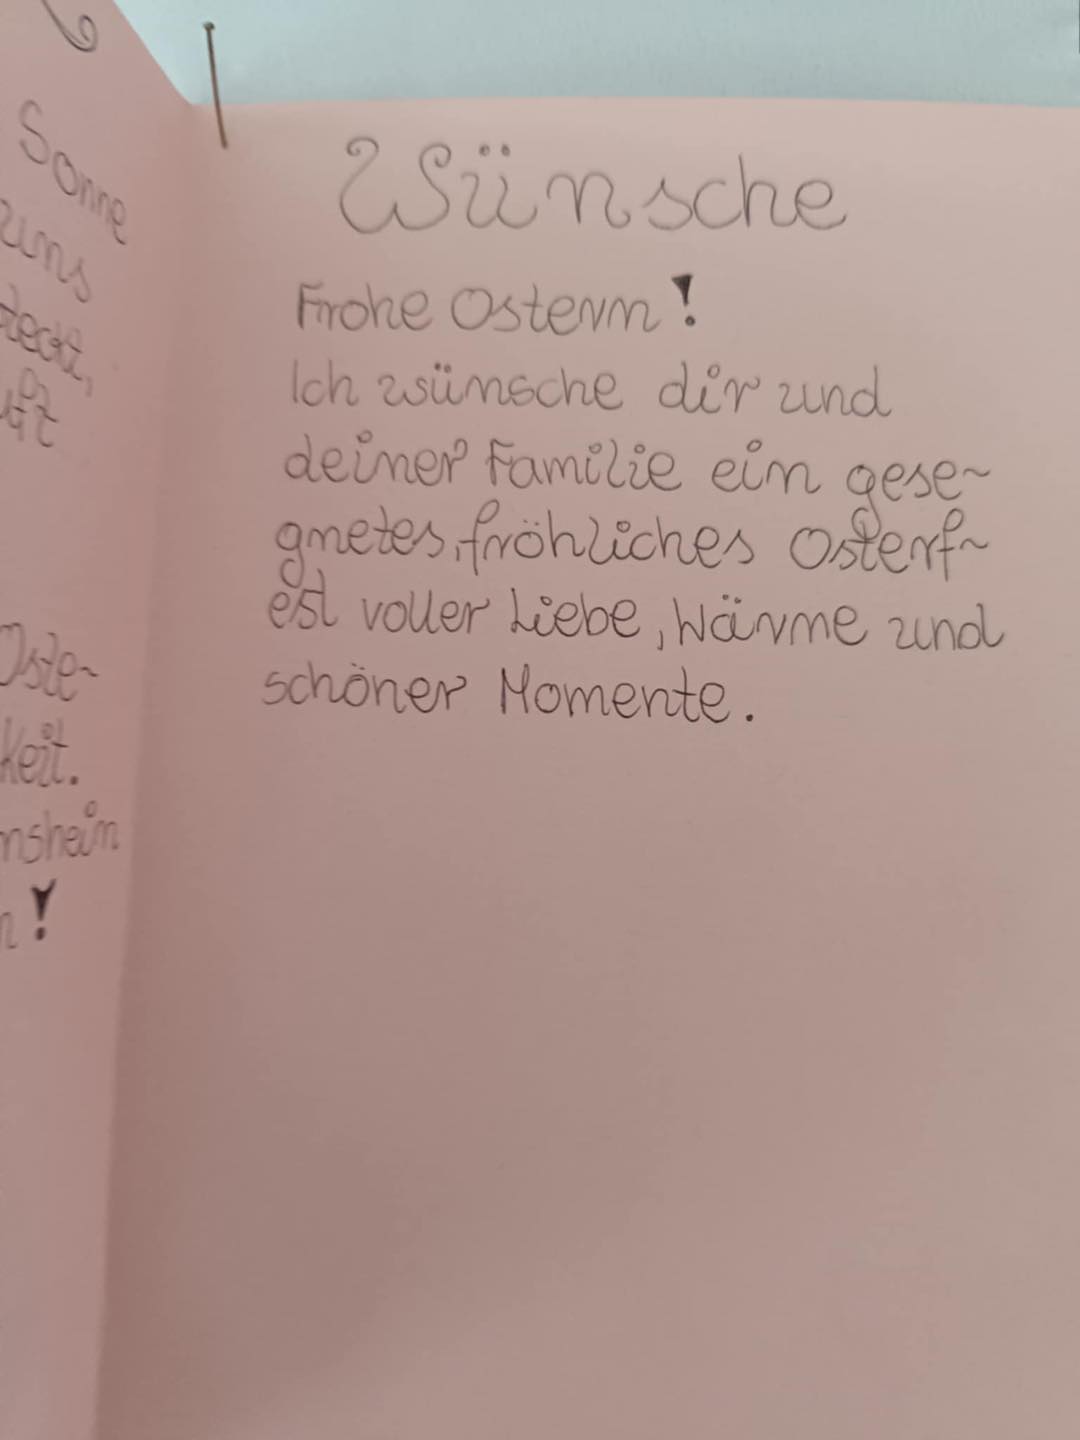 Sonne
uns
Oste~
keit.
!
Wünsche
Frohe Ostern!
Ich wünsche dir und
deiner Familie ein gese~
gnetes, fröhliches Osterf~
est voller Liebe, Wärme und
schöner Momente.